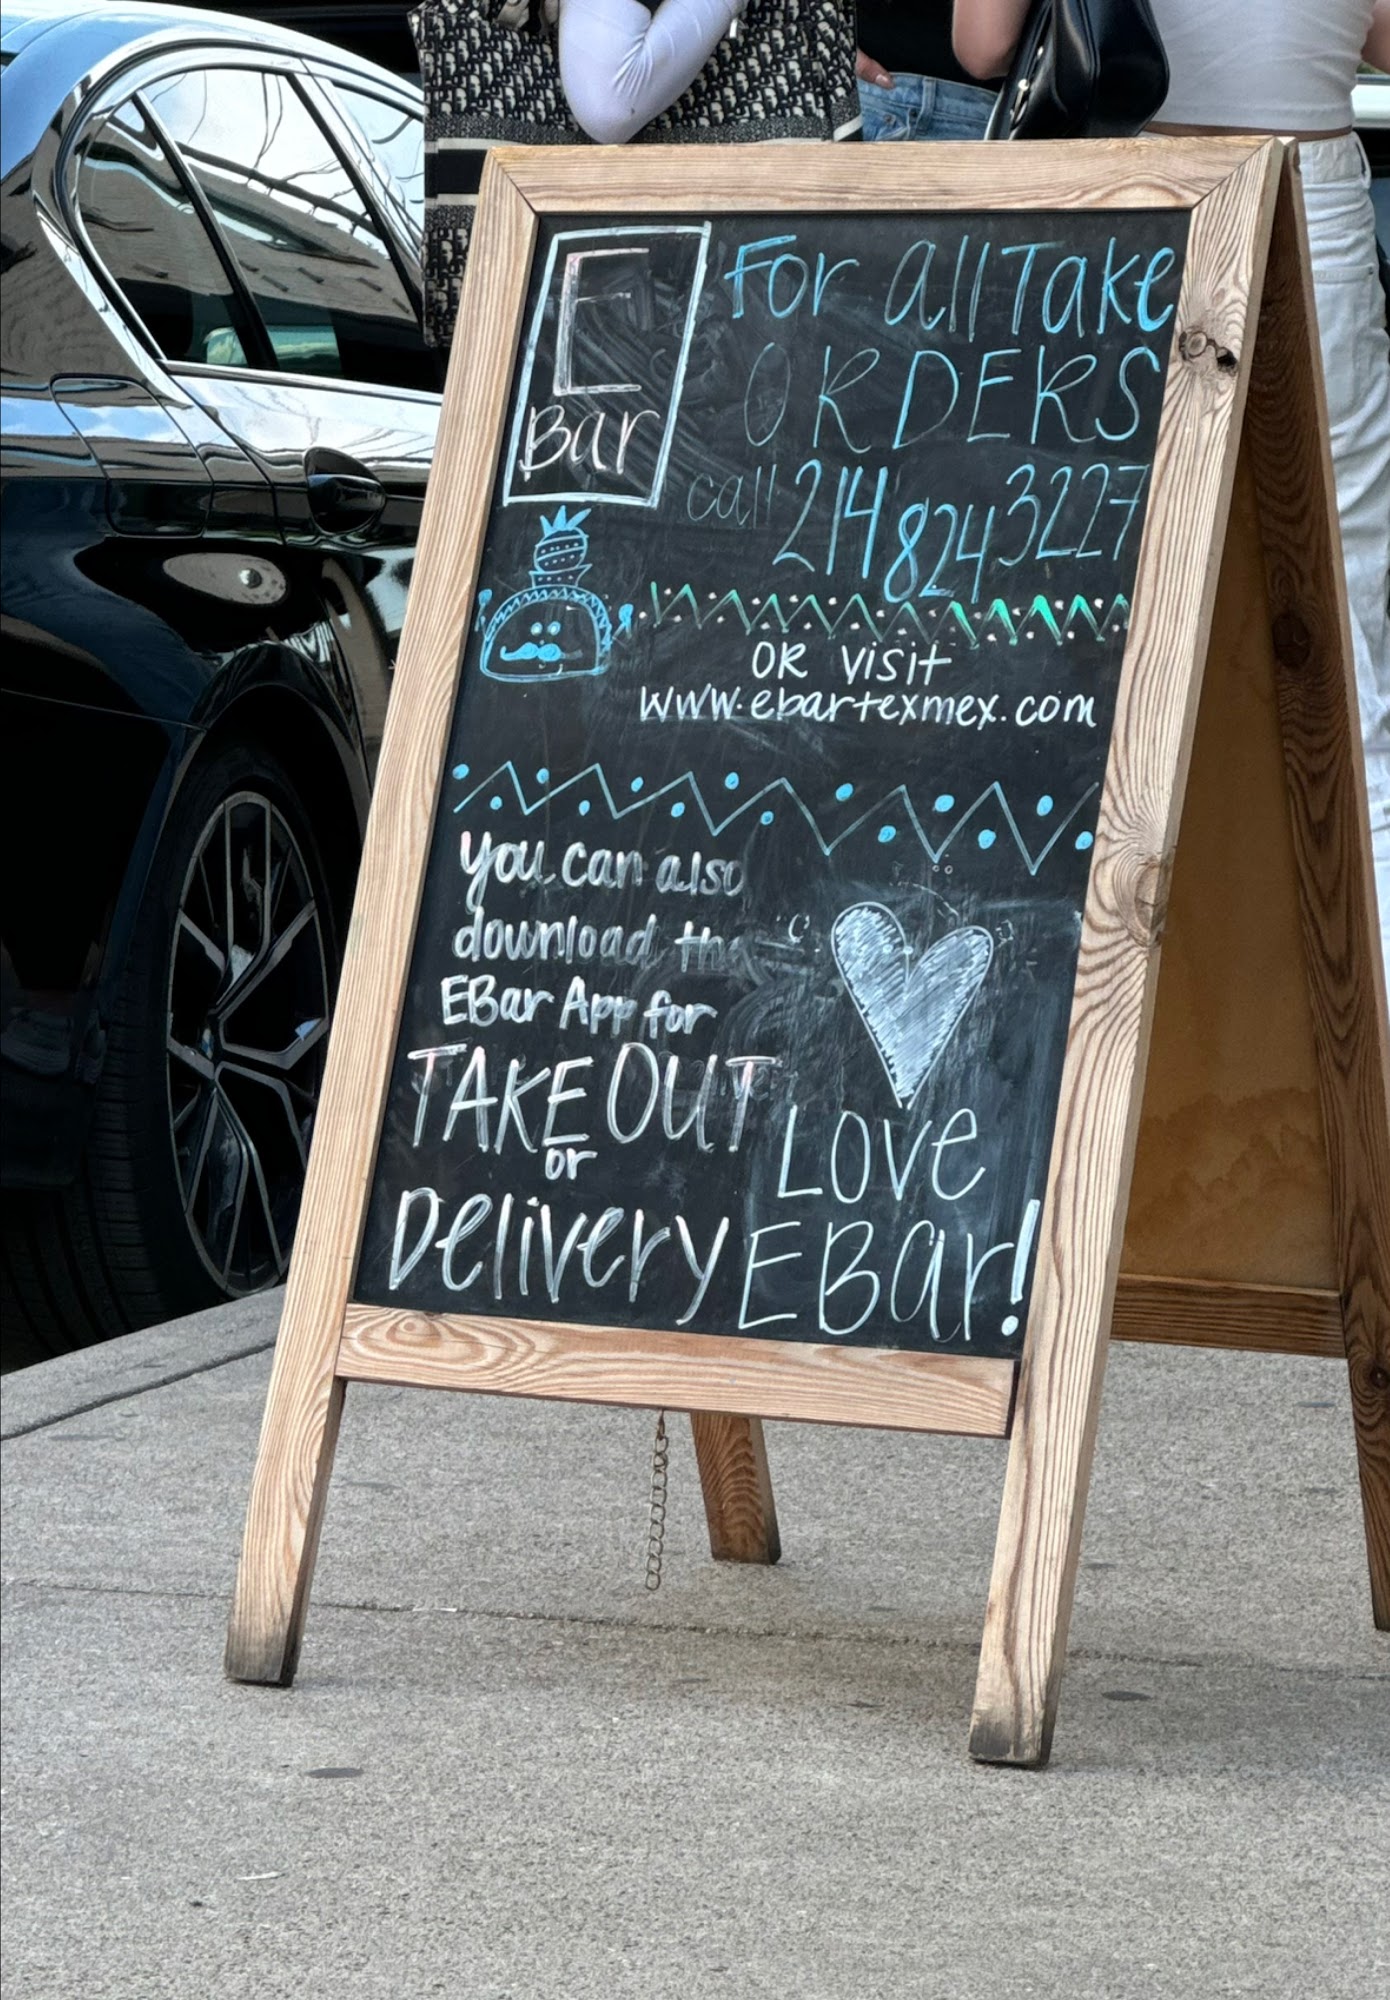 E
Bar
For all Take
ORDERS
call 214 824 3227
OR visit
www.ebartexmex.com
You can also
download the
EBar App for
TAKE OUT
or
Delivery
LOVe
EBar!